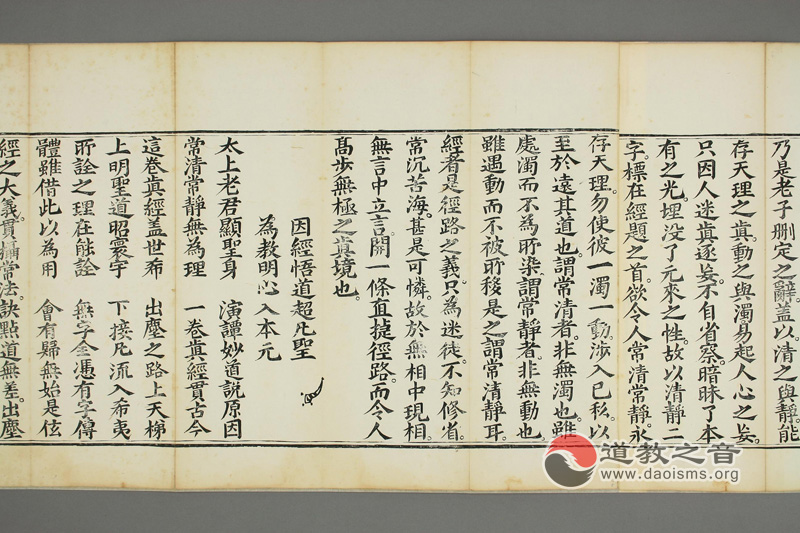 乃是老子刪定之辭。蓋以清之與靜。能
存天理之眞。動之與濁。易起人心之妄。
只因人迷眞逐妄。不自省察。暗昧了本
有之光。埋沒了元來之性。故以清靜二
字。標在經題之首。欲令人常清常靜。永
存天理。勿使彼一濁一動。涉入已私。以
至於遠其道也。謂常清者。非無濁也。雖
處濁而不為所染。謂常靜者。非無動也。
雖遇動而不被所移。是之謂常清靜耳。
經者是徑路之義。只為迷徒。不知修省。
常沉苦海。甚是可憐。故於無相中現相。
無言中立言。開一條直捷徑路。而令人
高步無極之眞境也。
因經悟道超凡聖
為教明心入本元
太上老君顯聖身 演譚妙道説原因
常清常靜無為理 一卷眞經貫古今
這卷眞經蓋世希 出塵之路上天梯
上明聖道昭寰宇 下接凡流入希夷
所詮之理在能詮 無字全憑有字傳
體雖借此以為用 會有歸無始是伭
經之大義實攝常法。訣點道無差。出塵
道教之音
www.daoisms.org